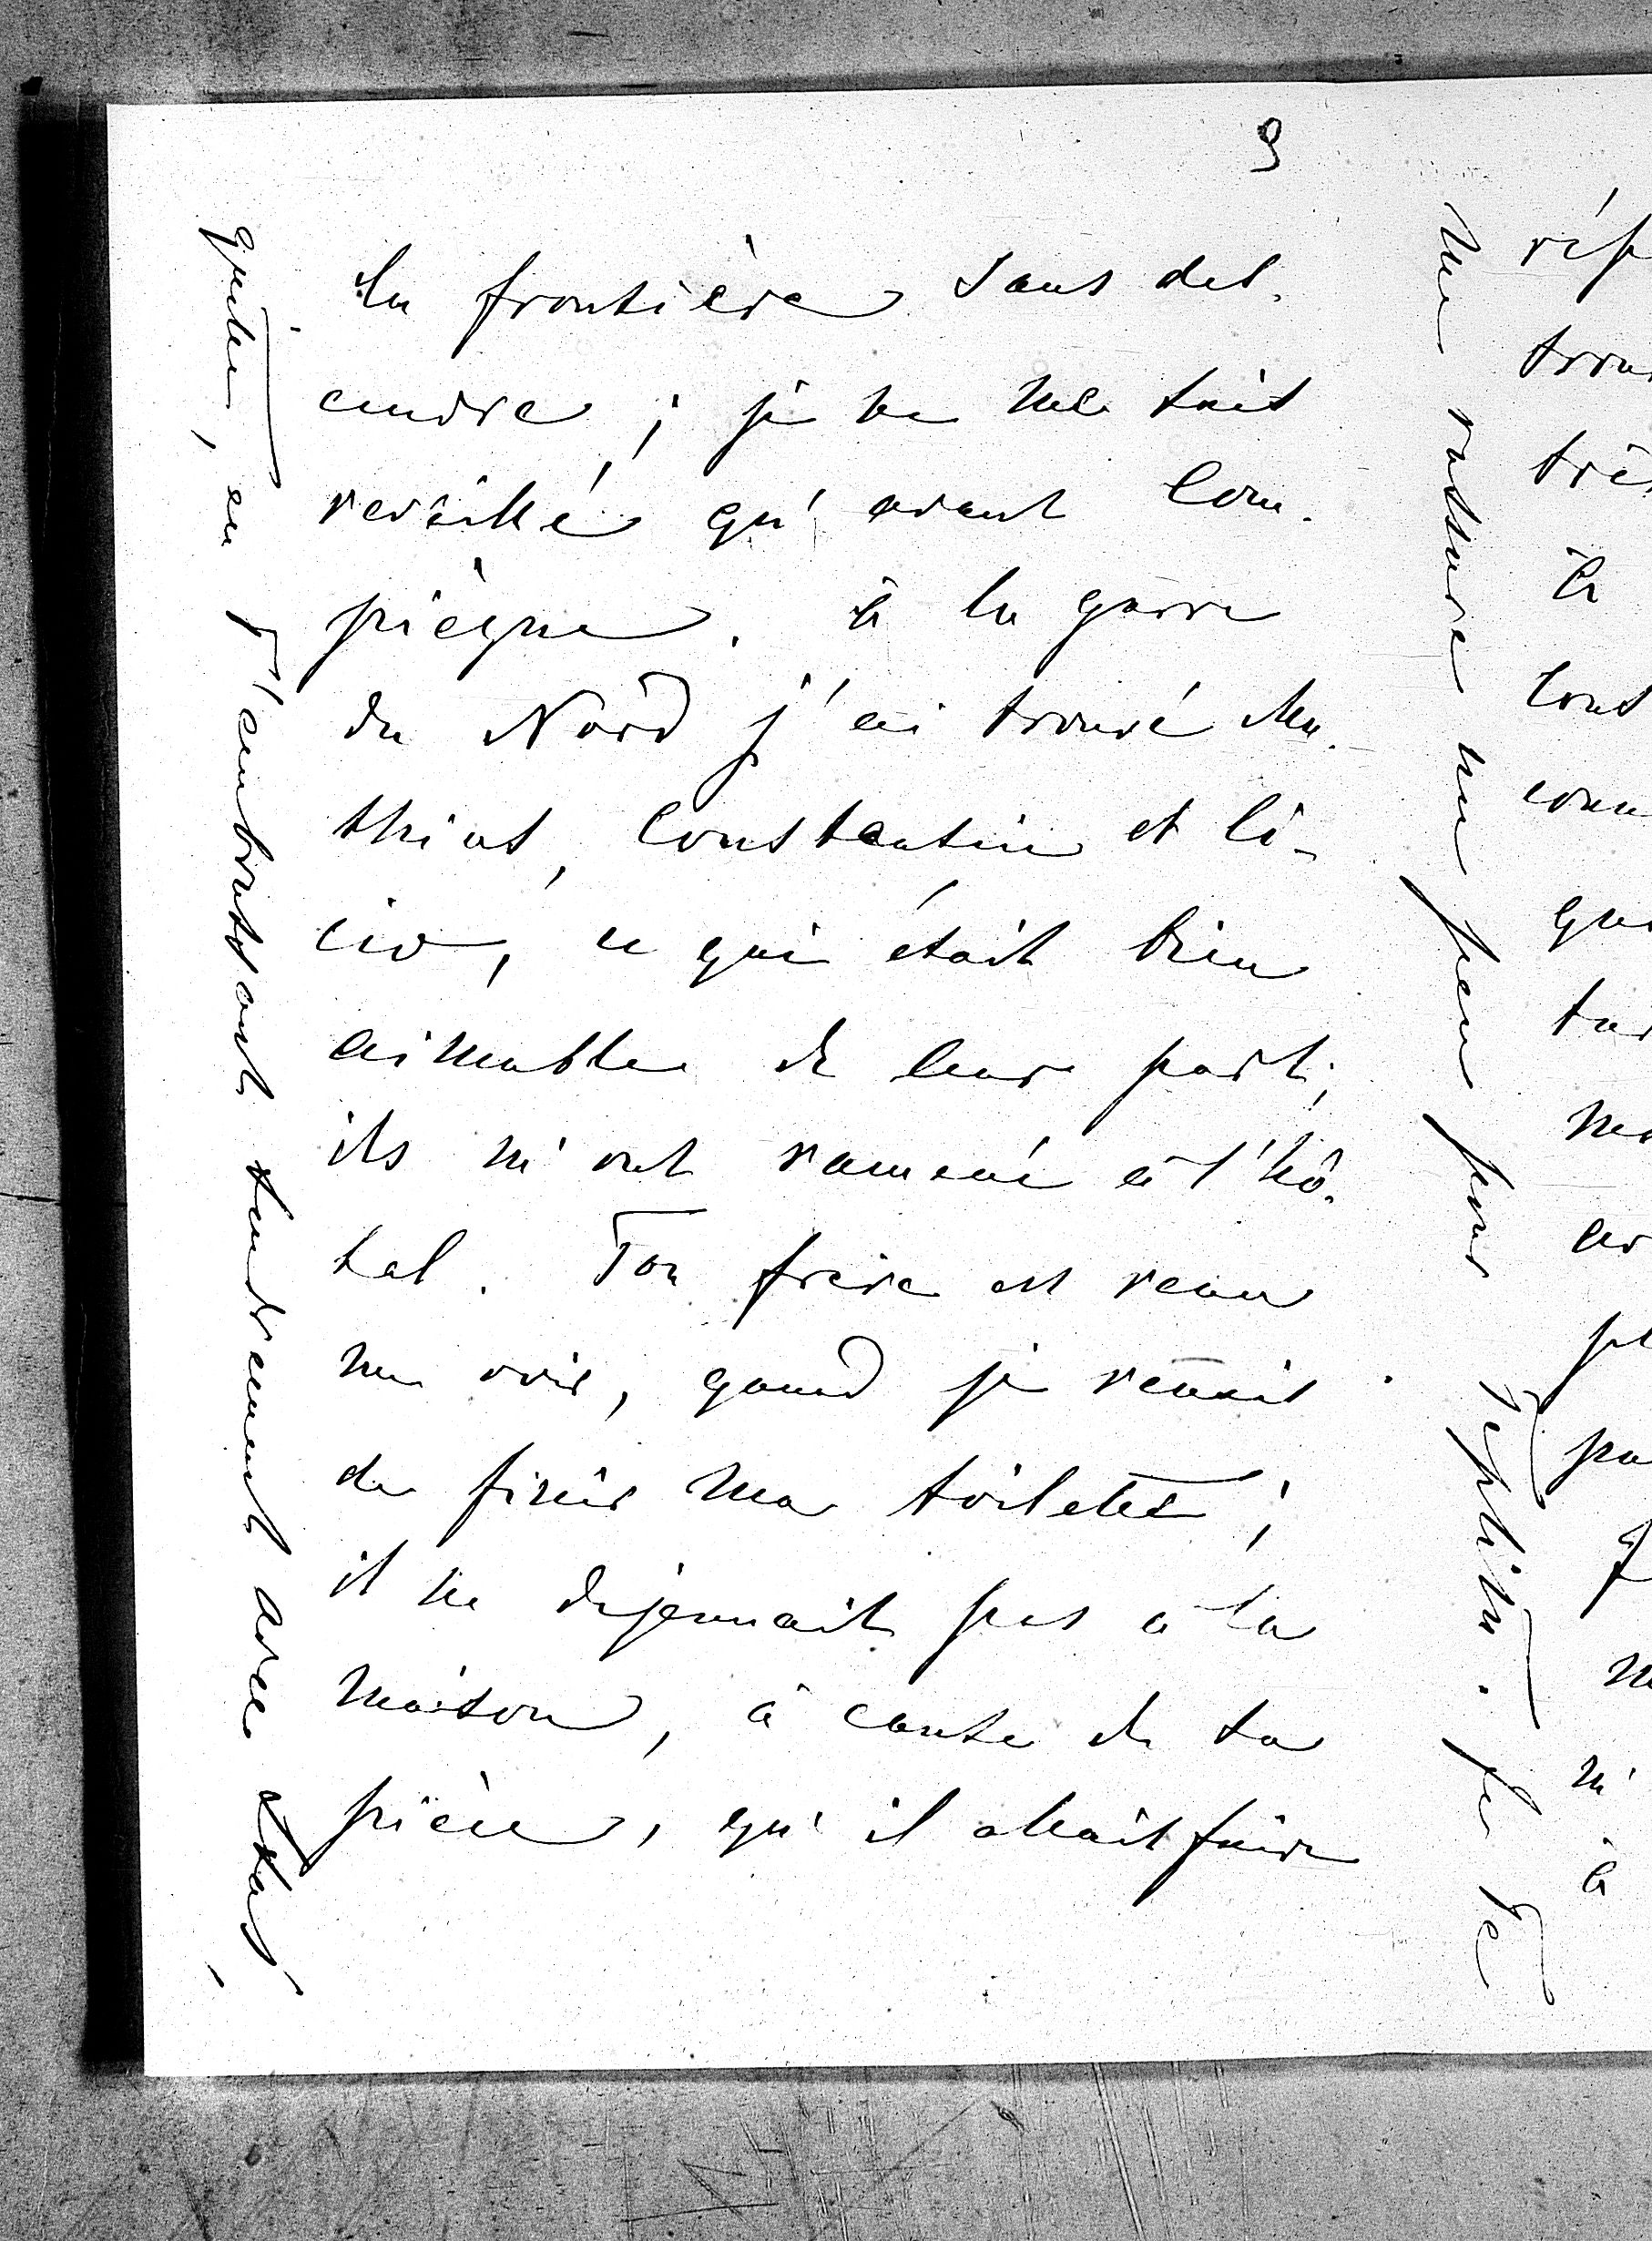 9
la frontière sans des.
cendre ; je ne me suis
reveillé qu'avant Com.
piègne. à la garre
du Nord j'ai trouvé Ma.
thias, Constantin et Li-
cio, ce qui était bien
aimable de leur part;
ils m'ont ramené à l'hô.
tel. Ton frère est venu
me voir, quand je venais
de finir ma toilette ;
il ne dejeunait pas a la
maison, à cause de sa
pièce, qu'il allait faire
quitte, en t'embrassant tendrement avec Stas,
me rassure un peu pour
Je te
trou
très
à
cons
conn